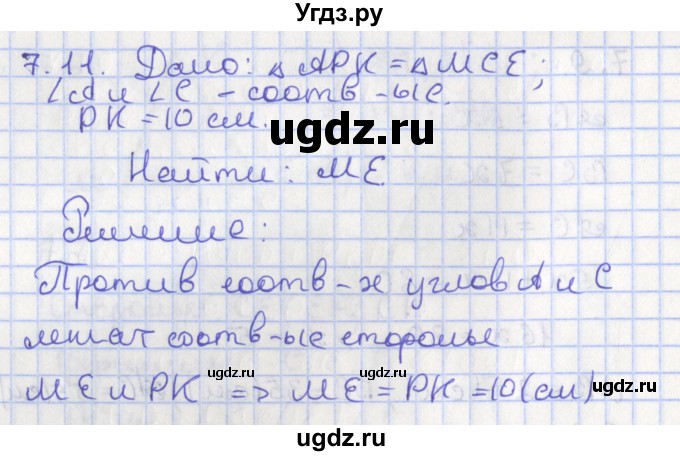 Угдз.ру
7.11. Дано: △ APK = △ MCE;
∠A и ∠C - соотв -ые.
PK = 10 см.
ugdz.ru
Найти: ME.
Решение:
Против соотв-х углов A и C
лежат соотв-ые стороны
ugdz.ru ugdz.ru ugdz.ru
ME и PK => ME = PK = 10 (см)
ugdz.ru